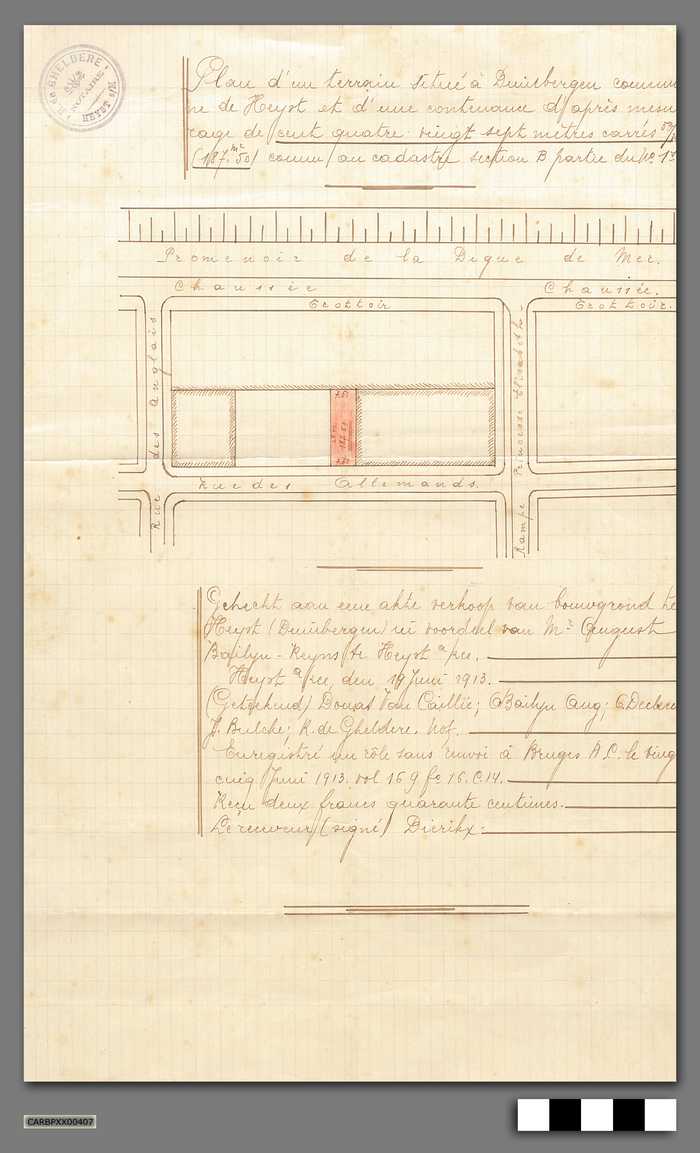 R. de GHELDERE
NOTAIRE
HEYST s/M
Plan d'un terrain situé à Duinbergen commu
ne de Heyst et d'une contenance d'après mesu
rage de cent quatre-vingt sept mètres carrés 50
(187.m² 50) connu au cadastre section B partie du No. 1
Promenoir de la Digue de Mer.
Chaussée
Chaussée.
Trottoir
Trottoir.
Rue des Anglais
Rampe Princesse Elisabeth
7.50
187.50
7.50
Rue des Allemands.
Gehecht aan eene akte verkoop van bouwgrond te
Heyst (Duinbergen) in voordeel van Mr August
Bailyu-Reyns te Heyst a/zee.
Heyst a/zee, den 19 Juni 1913.
(Geteekend) Donas Van Caillie; A Bailyu Aug; E. Declerc
J. Bulcke; R. de Gheldere, Not.
Enregistré un rôle sans renvoi à Bruges A.C. le ving
cinq Juni 1913. vol 169 fo 16. C.14.
Reçu deux francs quarante centimes.
Le receveur (signé) Dierikx:
CARBPXX00407